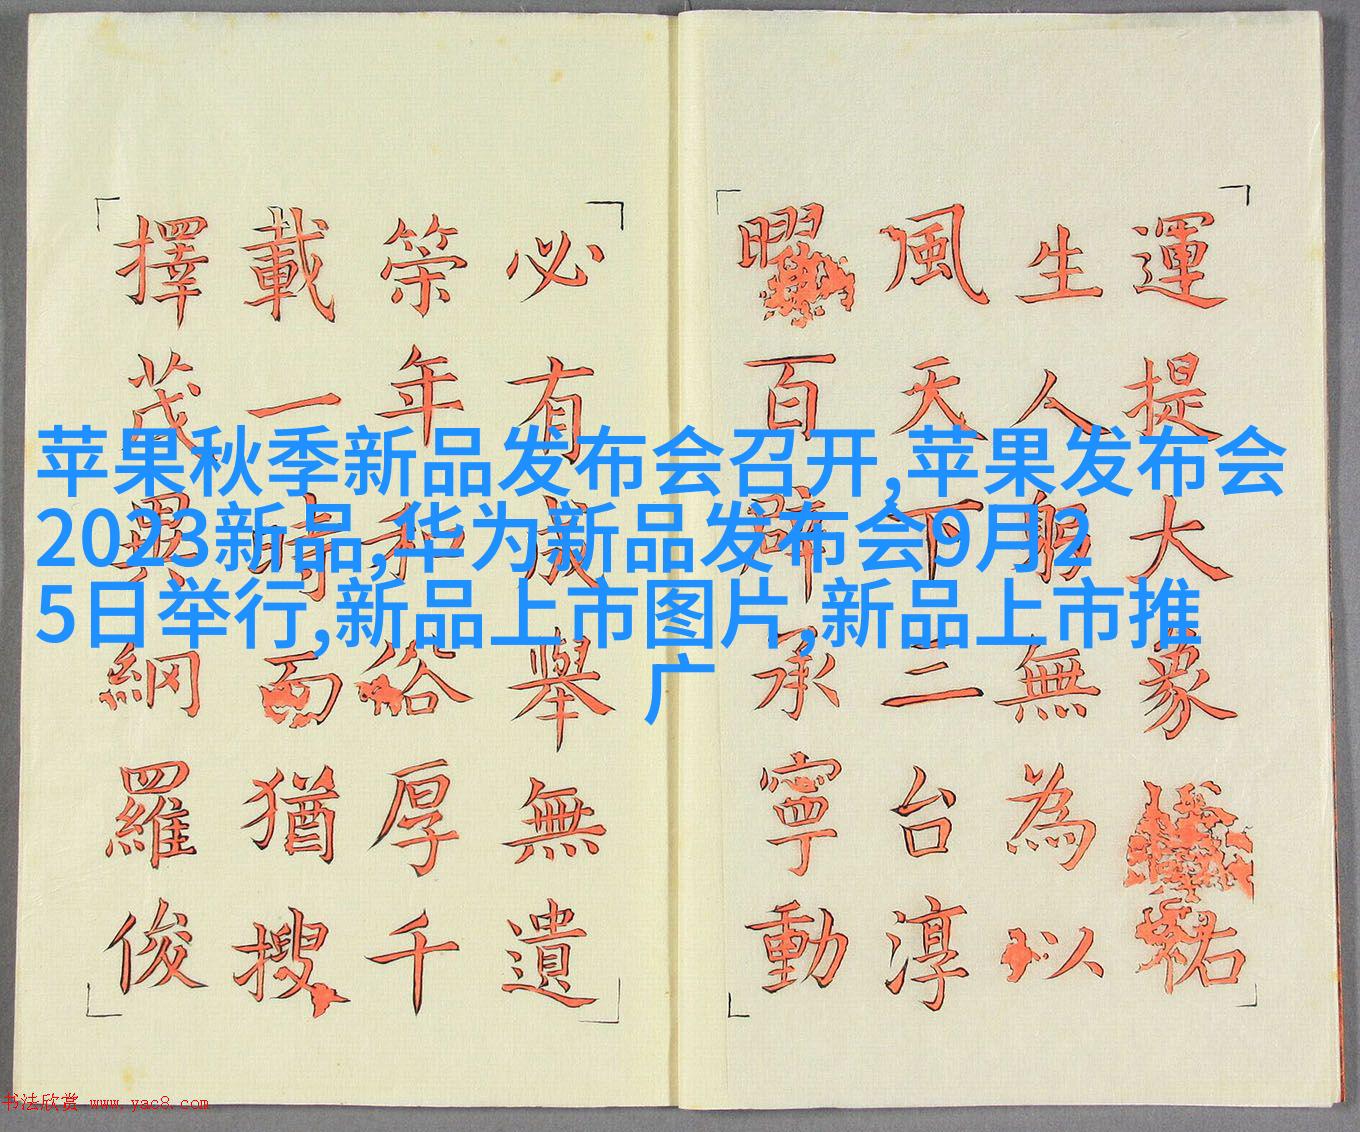 運提大象祐
生人躬無為以
風天下三台淳
曜百辟承寧動
必有成舉無遺
筞年和俗厚千
載一時而猶搜
擇茂異網羅俊
苹果秋季新品发布会召开,苹果发布会
2023新品,华为新品发布会9月2
5日举行,新品上市图片,新品上市推
广
书法欣赏 www.yac8.com